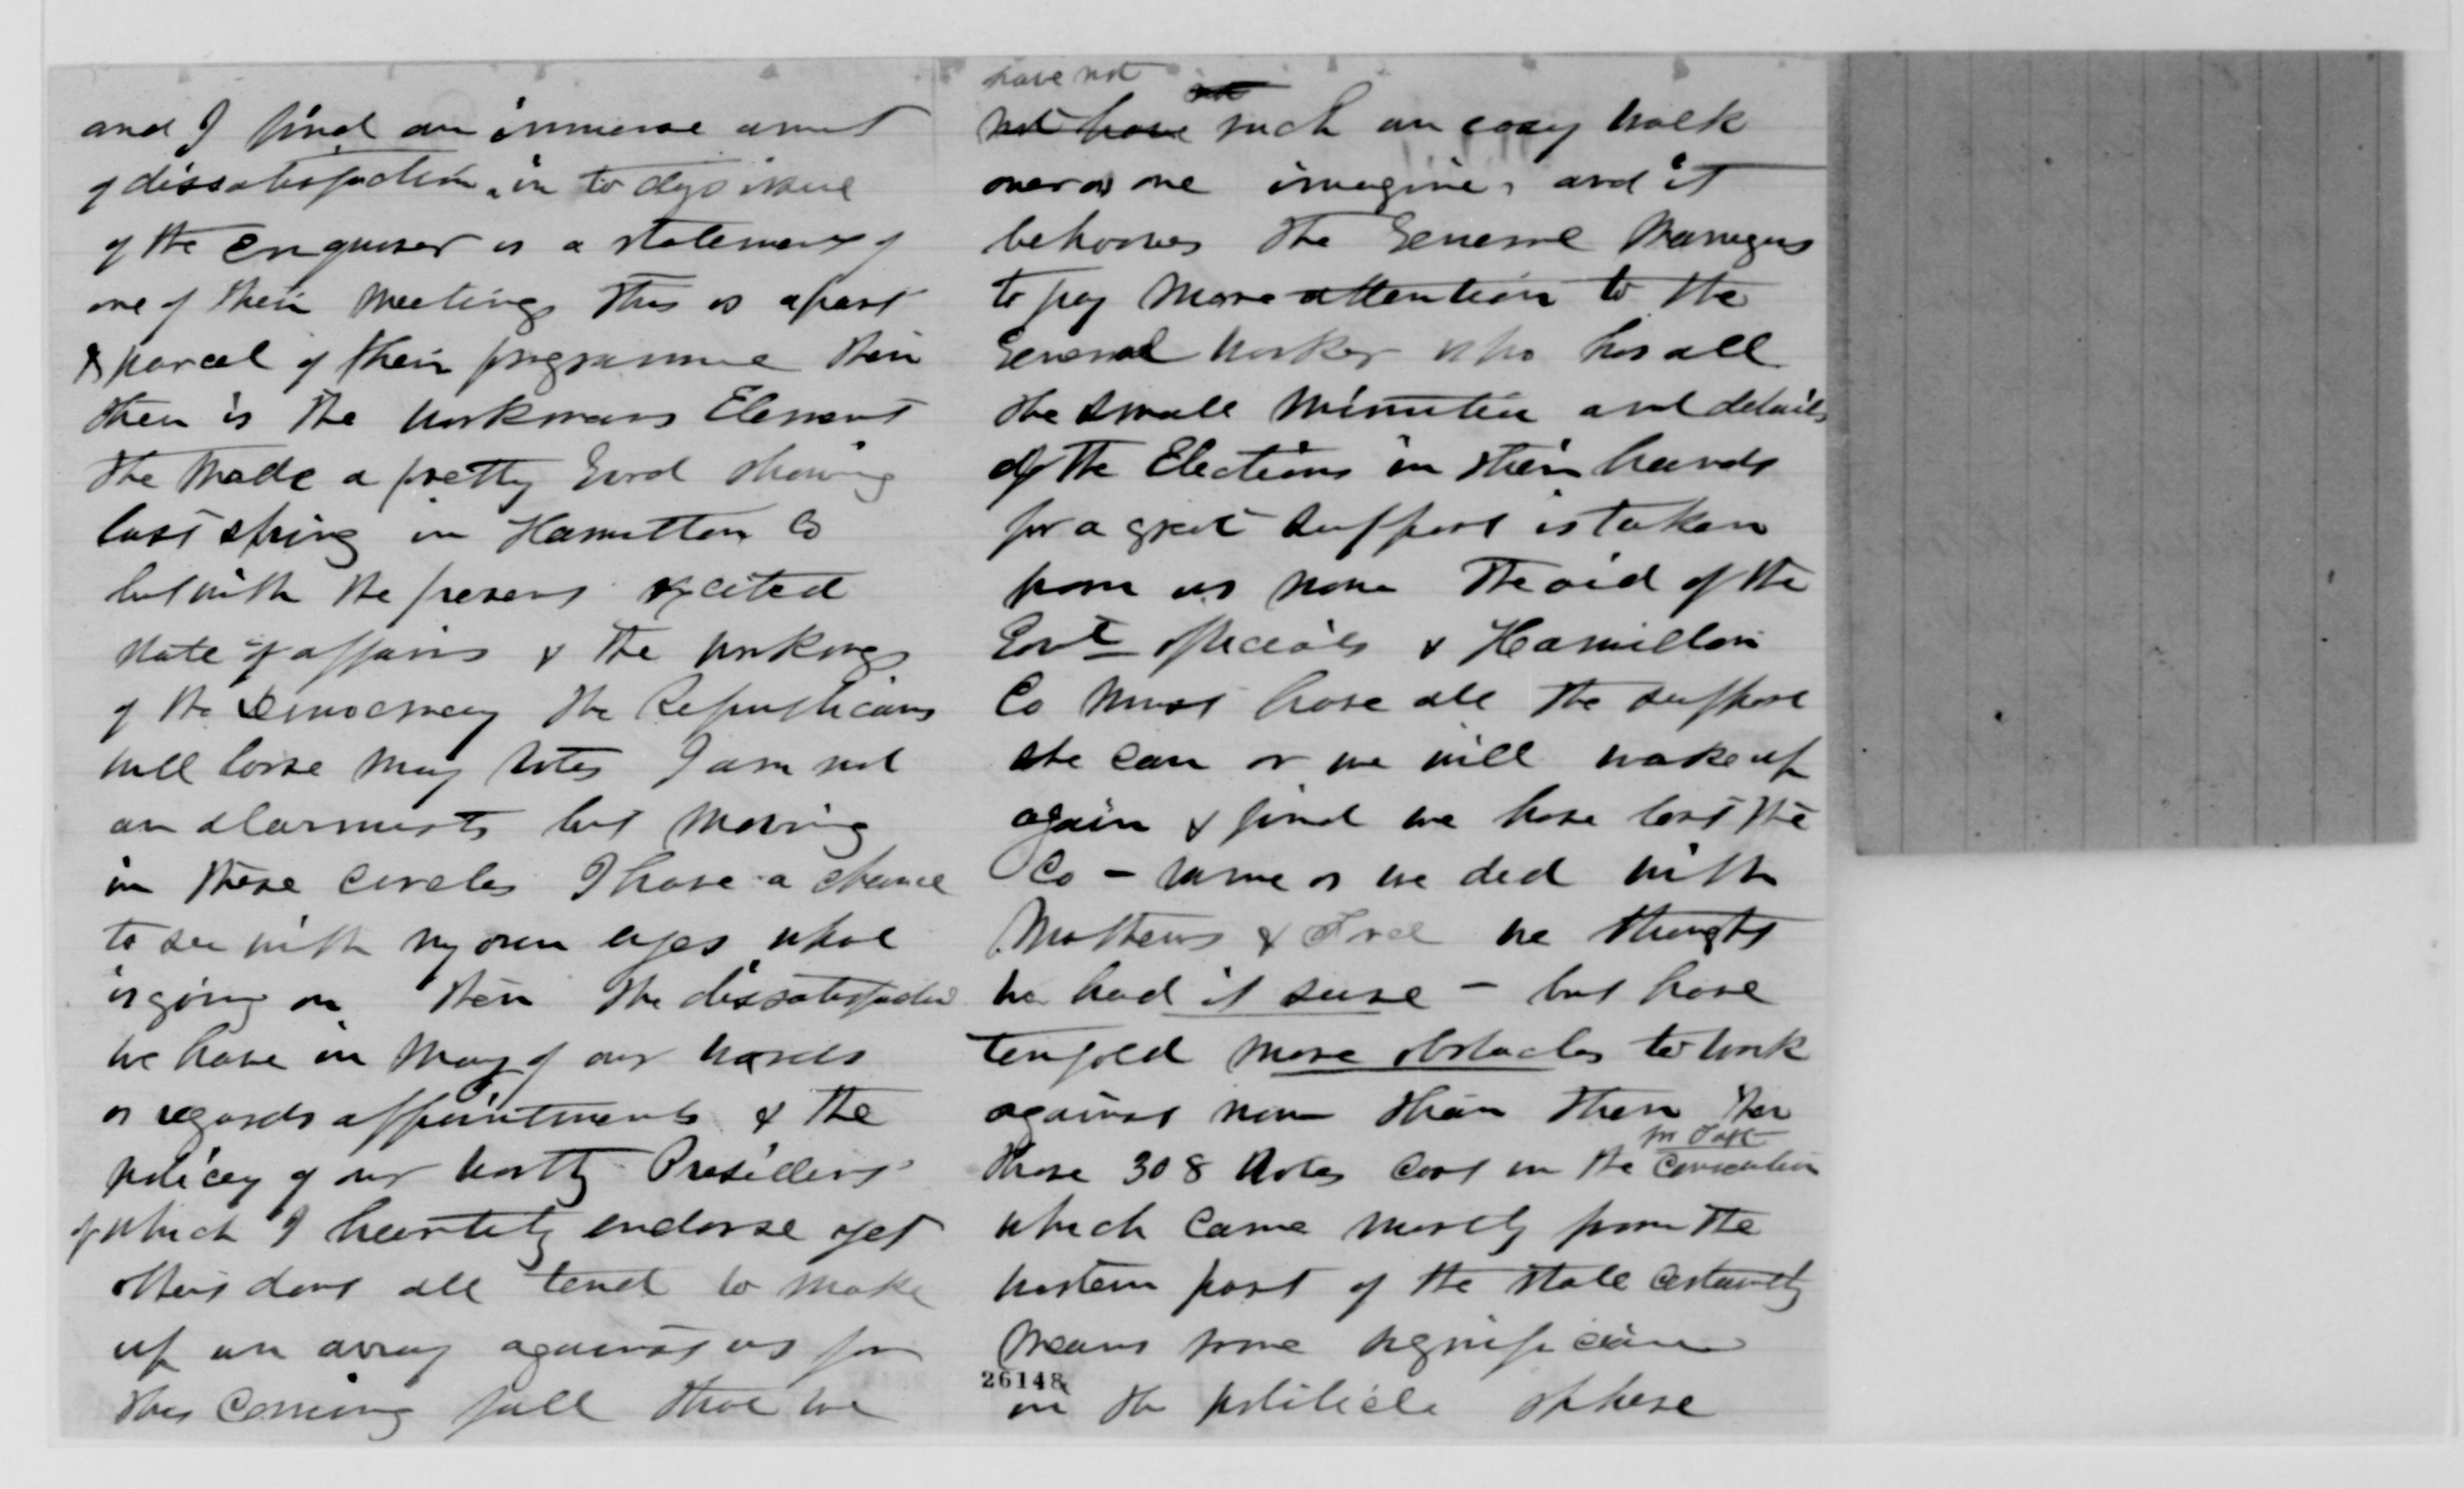 and I find an immense amt
of dissatisfaction. in to days issue
of the Enquirer is a statement of
one of their meetings this is a part
& parcel of their programme then
then is the workmans Element
the made a pretty Good showing
last spring in Hamilton Co
but with the present excited
state of affairs & the workings
of the Democracy the Republicans
will loose may votes I am not
an alarmists but moving
in these circles I have a chance
to see with my own eyes what
is going on then the dissatisfaction
we have in many of our wards
as regards appointments & the
policey of our worthy President
of which I heartily endorse yet
others dont all tend to make
up an array against us for
this coming fall that we
have not
not have such an easy walk
over as one imagines and it
behooves the General Managers
to pay more attention to the
General worker who has all
the small minutia and details
of the Elections in their hands
for a great support is taken
from us now the aid of the
Govt officials & Hamilton
Co must have all the support
she can or we will wake up
again & find we have lost the
Co - same as we did with
Mathews & we thought
we had it sure - but have
tenfold more obstacles to work
against now than then
for Taft
those 308 votes cast in the Convention
which came mostly from the
western part of the state certainly
means some significance
26148
in the politicle sphere